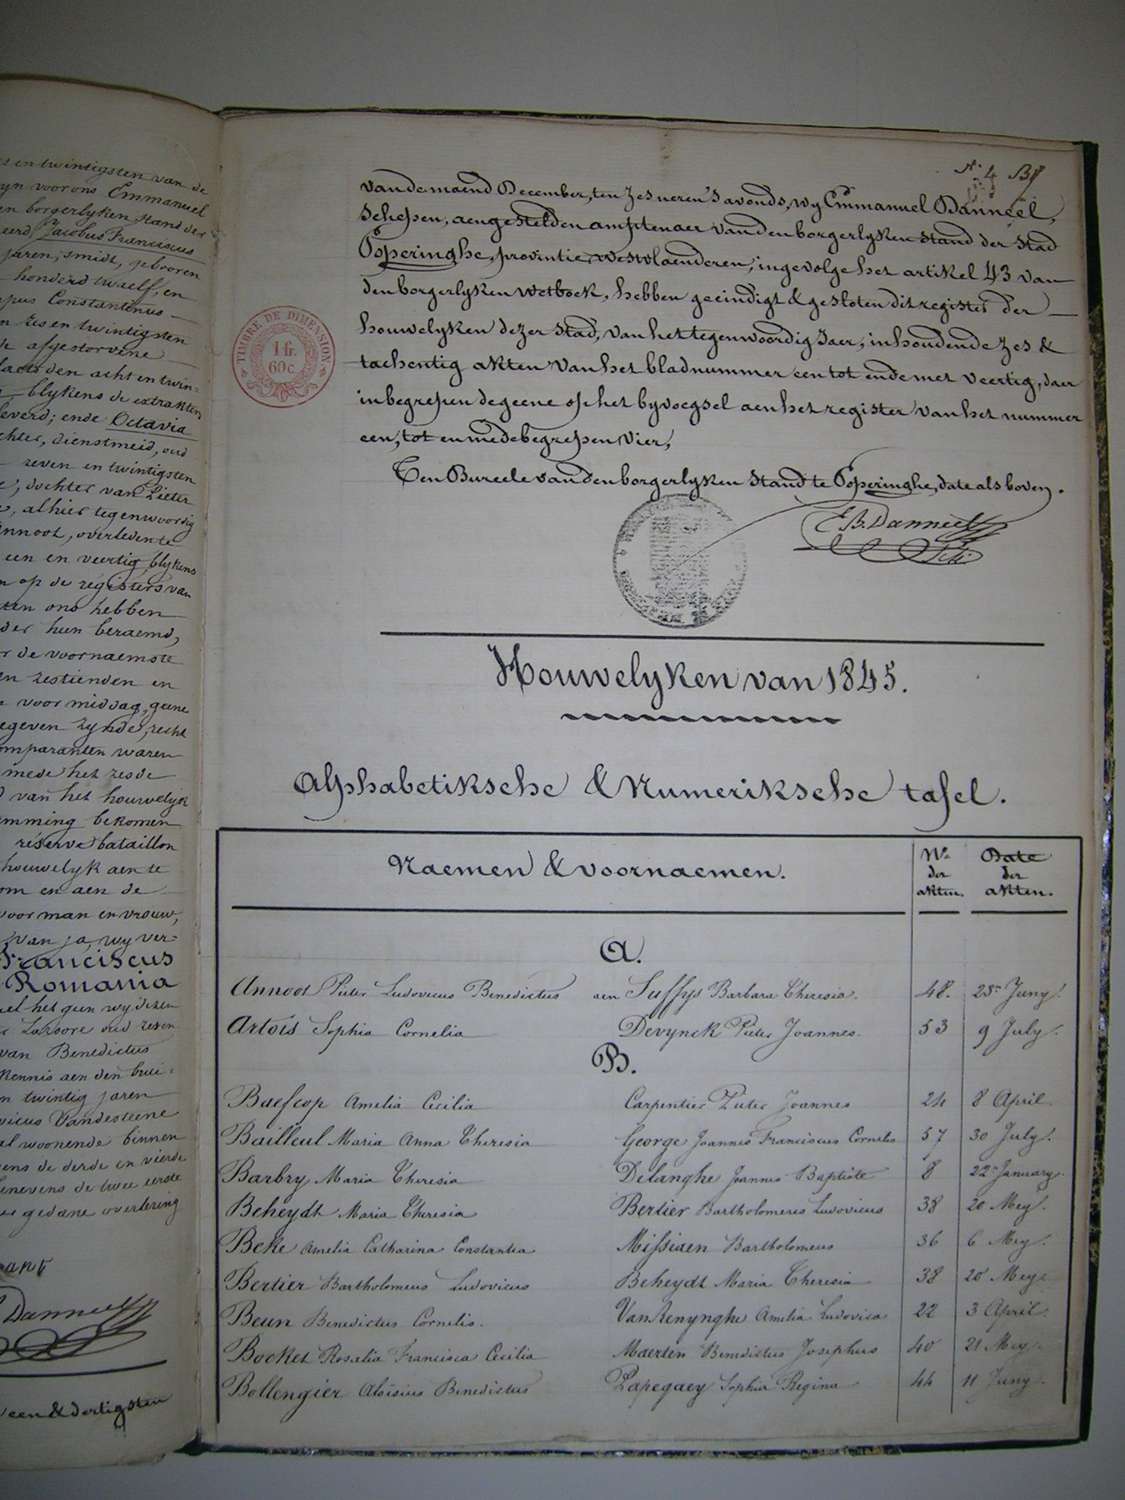 s en twintigsten van de
yn voor ons Emmanuel
en borgerlyken stand der
eerd Jacobus Franciscus
jaren, smidt, geboren
honderd twaelf, en
Constantinus
n zes en twintigsten
afgestorvene
den acht en twin-
blykens de extrakten
leverd; ende Octavia
dienstmeid, oud
zeven en twintigsten
dochter van Pieter
alhier tegenwoordig
Annoot, overleden te
een en veertig, blykens
n op de registers van
ons hebben
der hun beraemd,
r de voornaemste
en zestienden en
voor middag, geene
egeven zynde, recht
omparanten waren
mede het zesde
van het houwelyk
emming bekomen
réserve bataillon
houwelyk aen te
om en aen de
voor man en vrouw,
van ja, wy ver-
Franciscus
Romania
het geen wy dezen
oud zeven
van Benedictus
kennis aen den brui-
n twintig jaren
vicus Vandesteene
al woonende binnen
ens de derde en vierde
benevens de twee eerste
gedane overlezing
Danneel
een & dertigsten
No. 4
van de maend December, ten zes ueren 's avonds, wy Emmanuel Danneel,
Schepen, aengestelden amptenaer van den borgerlyken stand der stad
Poperinghe, provintie Westvlaenderen, ingevolge het artikel 43 van
den borgerlyken wetboek, hebben geëindigt & gesloten dit register der
houwelyken dezer stad, van het tegenwoordig jaer, inhoudende zes &
tachentig akten van het bladnummer een tot ende met veertig, daer
inbegrepen de geene op het byvoegsel aen het register van het nummer
een, tot en medebegrepen vier,
Ten Bureele van den borgerlyken stand te Poperinghe, date als boven.
TIMBRE DE DIMENSION
1 fr.
60 c.
E. B. Danneel
Sch:
Houwelyken van 1845.
Alphabetiksche & Numeriksche tafel.
Naemen & voornaemen. No. der akten. Date der akten.
A.
Annoot Pieter Ludovicus Benedictus aen Suffys Barbara Theresia. 48. 25 Juny.
Artois Sophia Cornelia Devynck Pieter Joannes. 53 9 July.
B.
Baefcop Amelia Cecilia Carpentier Pieter Joannes 24 8 April.
Bailleul Maria Anna Theresia George Joannes Franciscus Cornelis 57 30 July.
Barbry Maria Theresia Delanghe Joannes Baptiste 8 22 January.
Beheydt Maria Theresia Bertier Bartholomeus Ludovicus 38 20 Mey.
Beke Amelia Catharina Constantia Missiaen Bartholomeus 36 6 Mey.
Bertier Bartholomeus Ludovicus Beheydt Maria Theresia 38 20 Mey.
Beun Benedictus Cornelis. Van Renynghe Amelia Ludovica 22 3 April.
Bocket Rosalia Francisca Cecilia Maerten Benedictus Josephus 40 21 Mey.
Bollengier Aloïsius Benedictus Papegaey Sophia Regina 44 11 Juny.